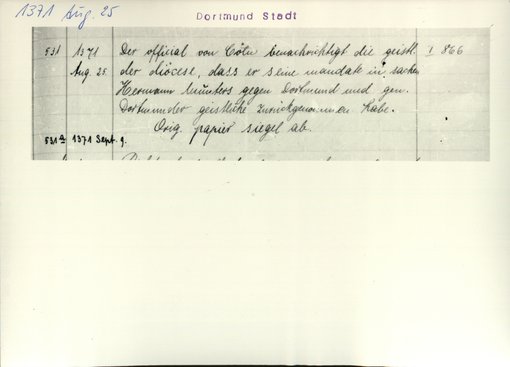 1371 Aug. 25
Dortmund Stadt
531 1371 Der official von Cöln benachrichtigt die geistl. I 866
Aug. 25. der diöcese, dass er seine mandate in sachen
Hermann Münters gegen Dortmund und gen.
Dortmunder geistliche zurückgenommen habe.
Orig. papier siegel ab.
531a 1371 Sept. 9.